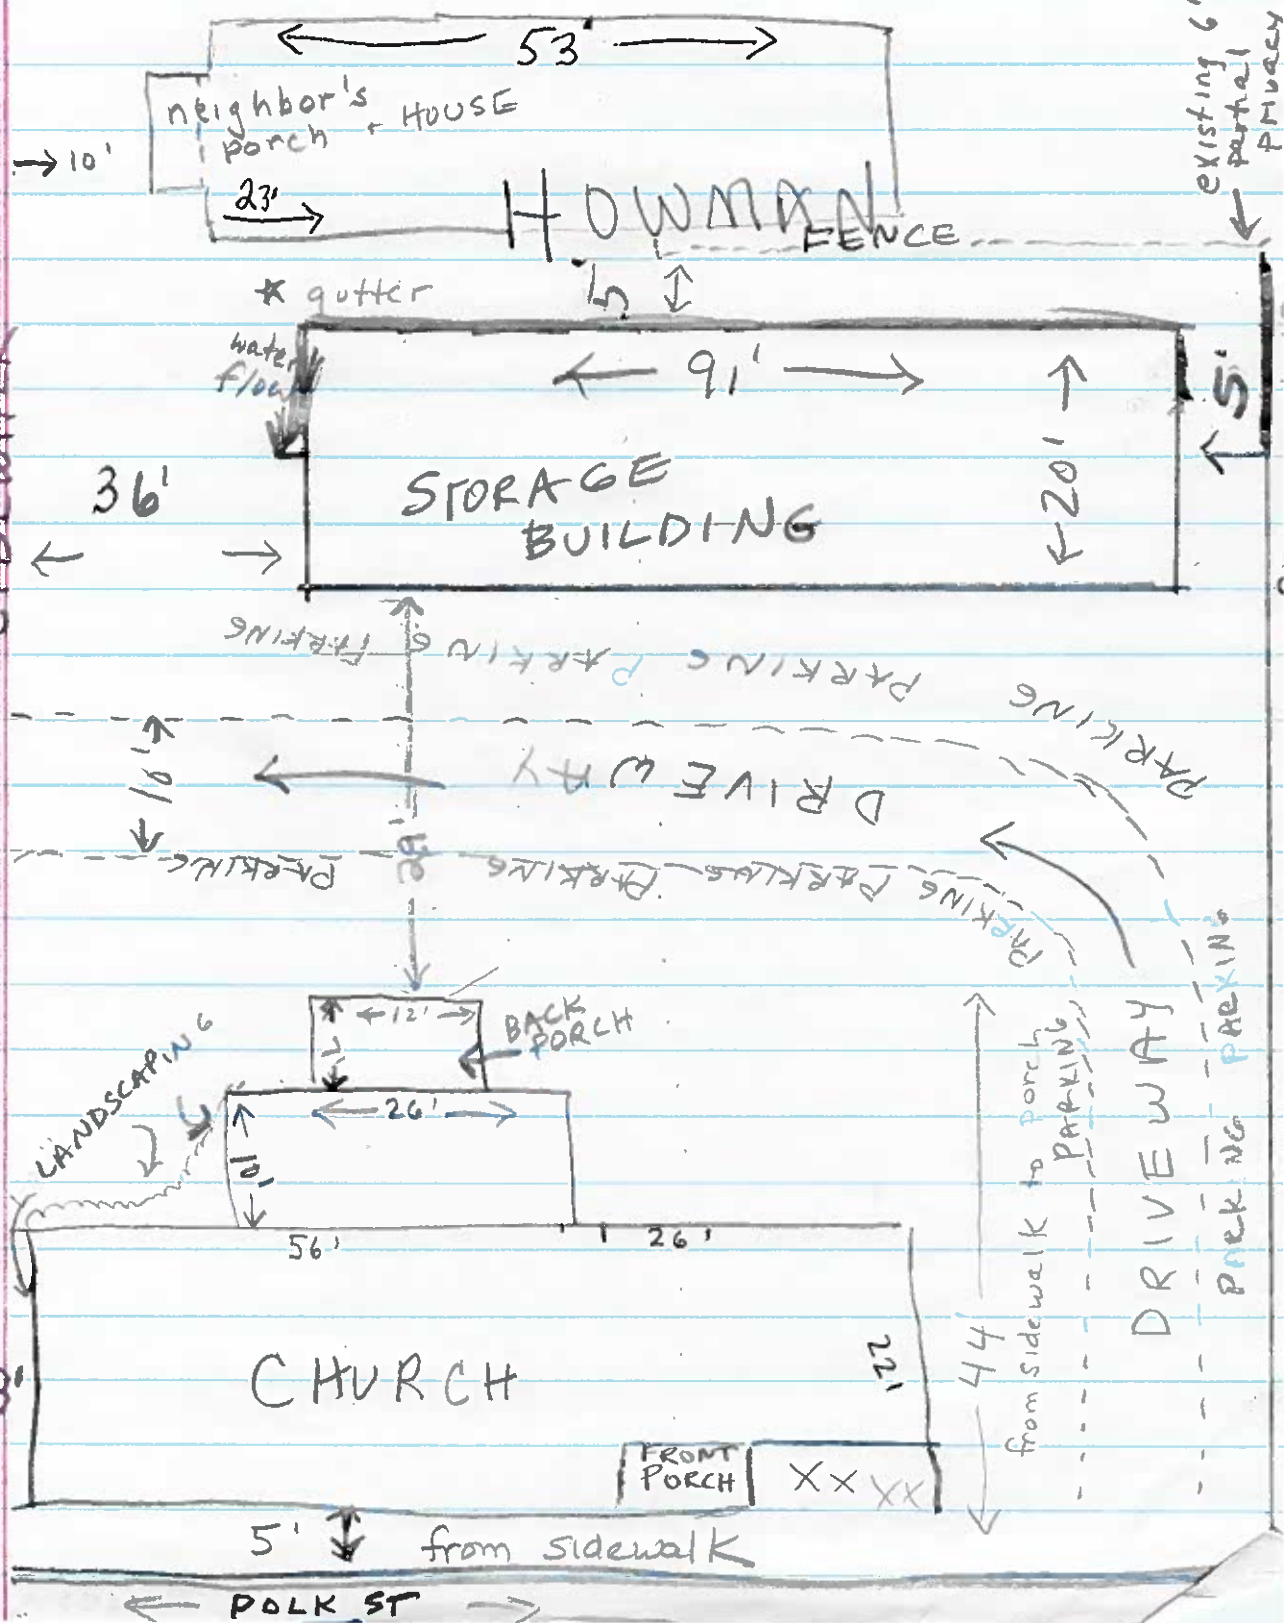 53'
existing 6'
partial
privacy
neighbor's
porch + HOUSE
→ 10'
23'
HOWMAN
FENCE
5'
* gutter
water
flow
91'
20'
5'
36'
STORAGE
BUILDING
PARKING PARKING PARKING PARKING PARKING
DRIVEWAY
PARKING PARKING PARKING PARKING PARKING
12'
BACK
PORCH
LANDSCAPING
26'
10'
56'
26'
CHURCH
22'
44'
from sidewalk to porch
PARKING
DRIVEWAY
PARKING PARKING
FRONT
PORCH
XX XX
5' from sidewalk
POLK ST